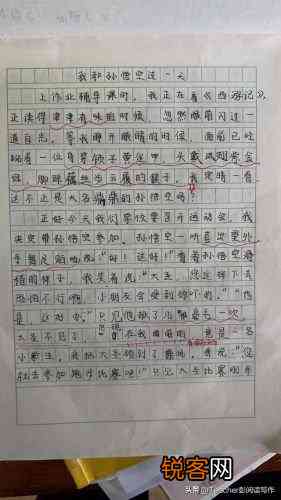 我和孙悟空过一天
上作业辅导课时，我正在看《西游记》，
正读得津津有味的时候，忽然眼前闪过一
道白光，等我睁开眼睛的时候，面前已经
站着一位身穿锁子黄金甲，头戴凤翅紫金
冠，脚踩藕丝步云履的猴子，我定睛一看
这不正是大名鼎鼎的孙悟空吗？
正好今天我们学校要召开运动会，我
决定带孙悟空参加，孙悟空一听直耍
手舞足蹈地说："好！这好！"看着孙悟空
的样子，我笑着说："大圣，您这样下去
恐怕不行啊，小朋友会受到惊吓的。""
大圣不见了，在我眼前的竟是一名
小学生，我把大圣领到了操场，老说："您
就去参加跑步比赛吧！"只见大圣比赛
锐客网
头条 @Teacher彭阅读写作